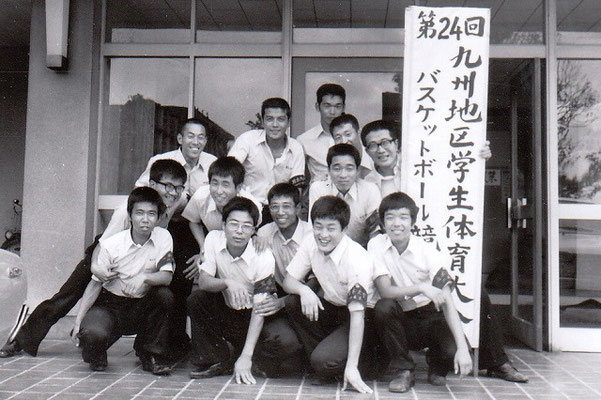 第24回
九州地区学生体育大会
バスケットボール競